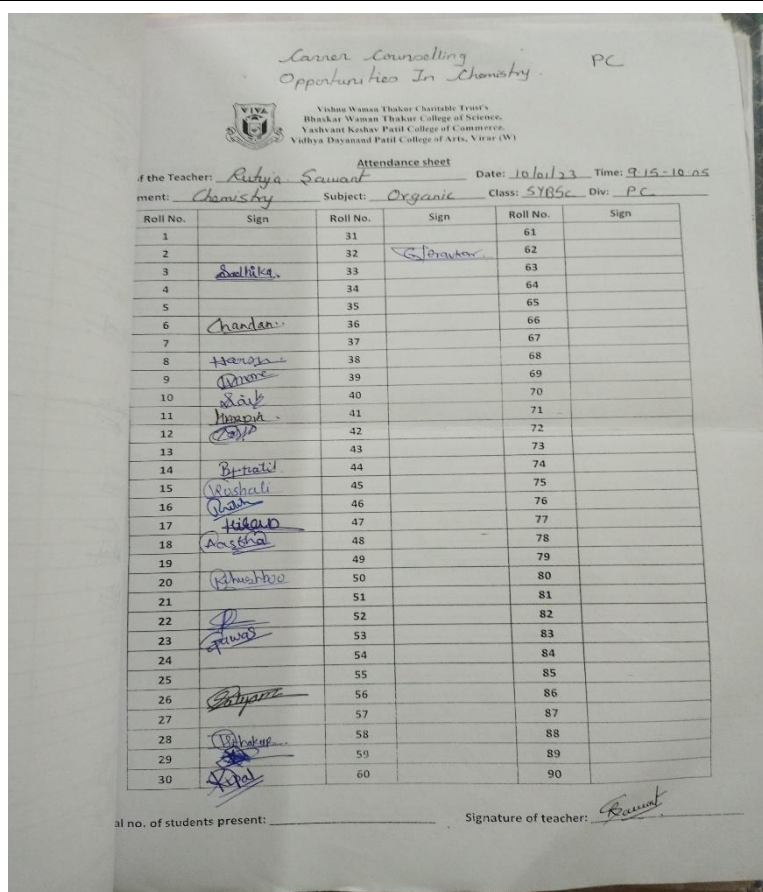 Carrer Counselling
Opportunities In Chemistry. PC
VIVA
Vishnu Waman Thakur Charitable Trust's
Bhaskar Waman Thakur College of Science,
Yashvant Keshav Patil College of Commerce,
Vidhya Dayanand Patil College of Arts, Virar (W)
Attendance sheet
of the Teacher: Rutuja Sawant Date: 10/01/23 Time: 9.15-10.05
ment: Chemistry Subject: Organic Class: SYBSc Div: PC
Roll No. Sign Roll No. Sign Roll No. Sign
1 31 61
2 32 62
3 Sadhika 33 63
4 34 64
5 35 65
6 Chandan 36 66
7 37 67
8 38 68
9 39 69
10 40 70
11 41 71
12 42 72
13 43 73
14 44 74
15 Roshali 45 75
16 46 76
17 47 77
18 Aastha 48 78
19 49 79
20 Khushboo 50 80
21 51 81
22 52 82
23 Pawas 53 83
24 54 84
25 55 85
26 Satyam 56 86
27 57 87
28 58 88
29 59 89
30 60 90
al no. of students present: Signature of teacher: RSawant